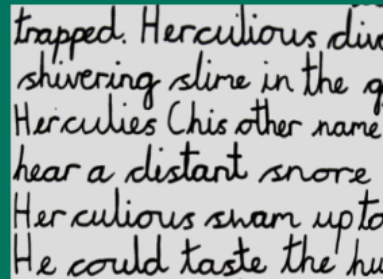 trapped. Herculious
shivering slime in the
Herculies (his other name
hear a distant snore
Her culious swam up to
He could taste the